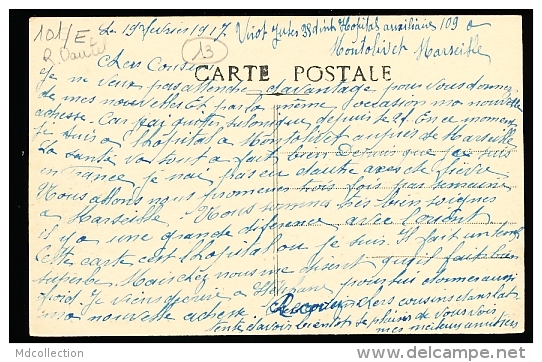 101/E
13
Le 19 février 1917. Virot Jules Hopital auxiliaire 109 a
Montolivet Marseille
Chers Cousins
CARTE POSTALE
Je ne veux pas attendre davantage pour vous donner
de mes nouvelles Et par la même occasion ma nouvelle
adresse. Car j'ai quitté Salonique depuis le 21. En ce moment
je suis a l'hopital a Montolivet auprès de Marseille
La santé va tout a fait bien depuis que je suis
en France je n'ai pas eu d'autre accès de fièvre
Nous allons nous promener trois fois par semaine
a Marseille. Nous sommes très bien soignés
il y a une grande diférence avec l'orient
Cette carte est l'hopital ou je suis. Il fait un temps
superbe Mais chez nous me disent qu'il fait bien
froid. Je viens d'écrire a pour lui donner aussi
ma nouvelle adresse. Recevez Chers cousins dans l'at
tente d'avoir bientot le plaisir de vous voir
mes meilleurs amitiés
Mdcollection
http://www.delcampe.net